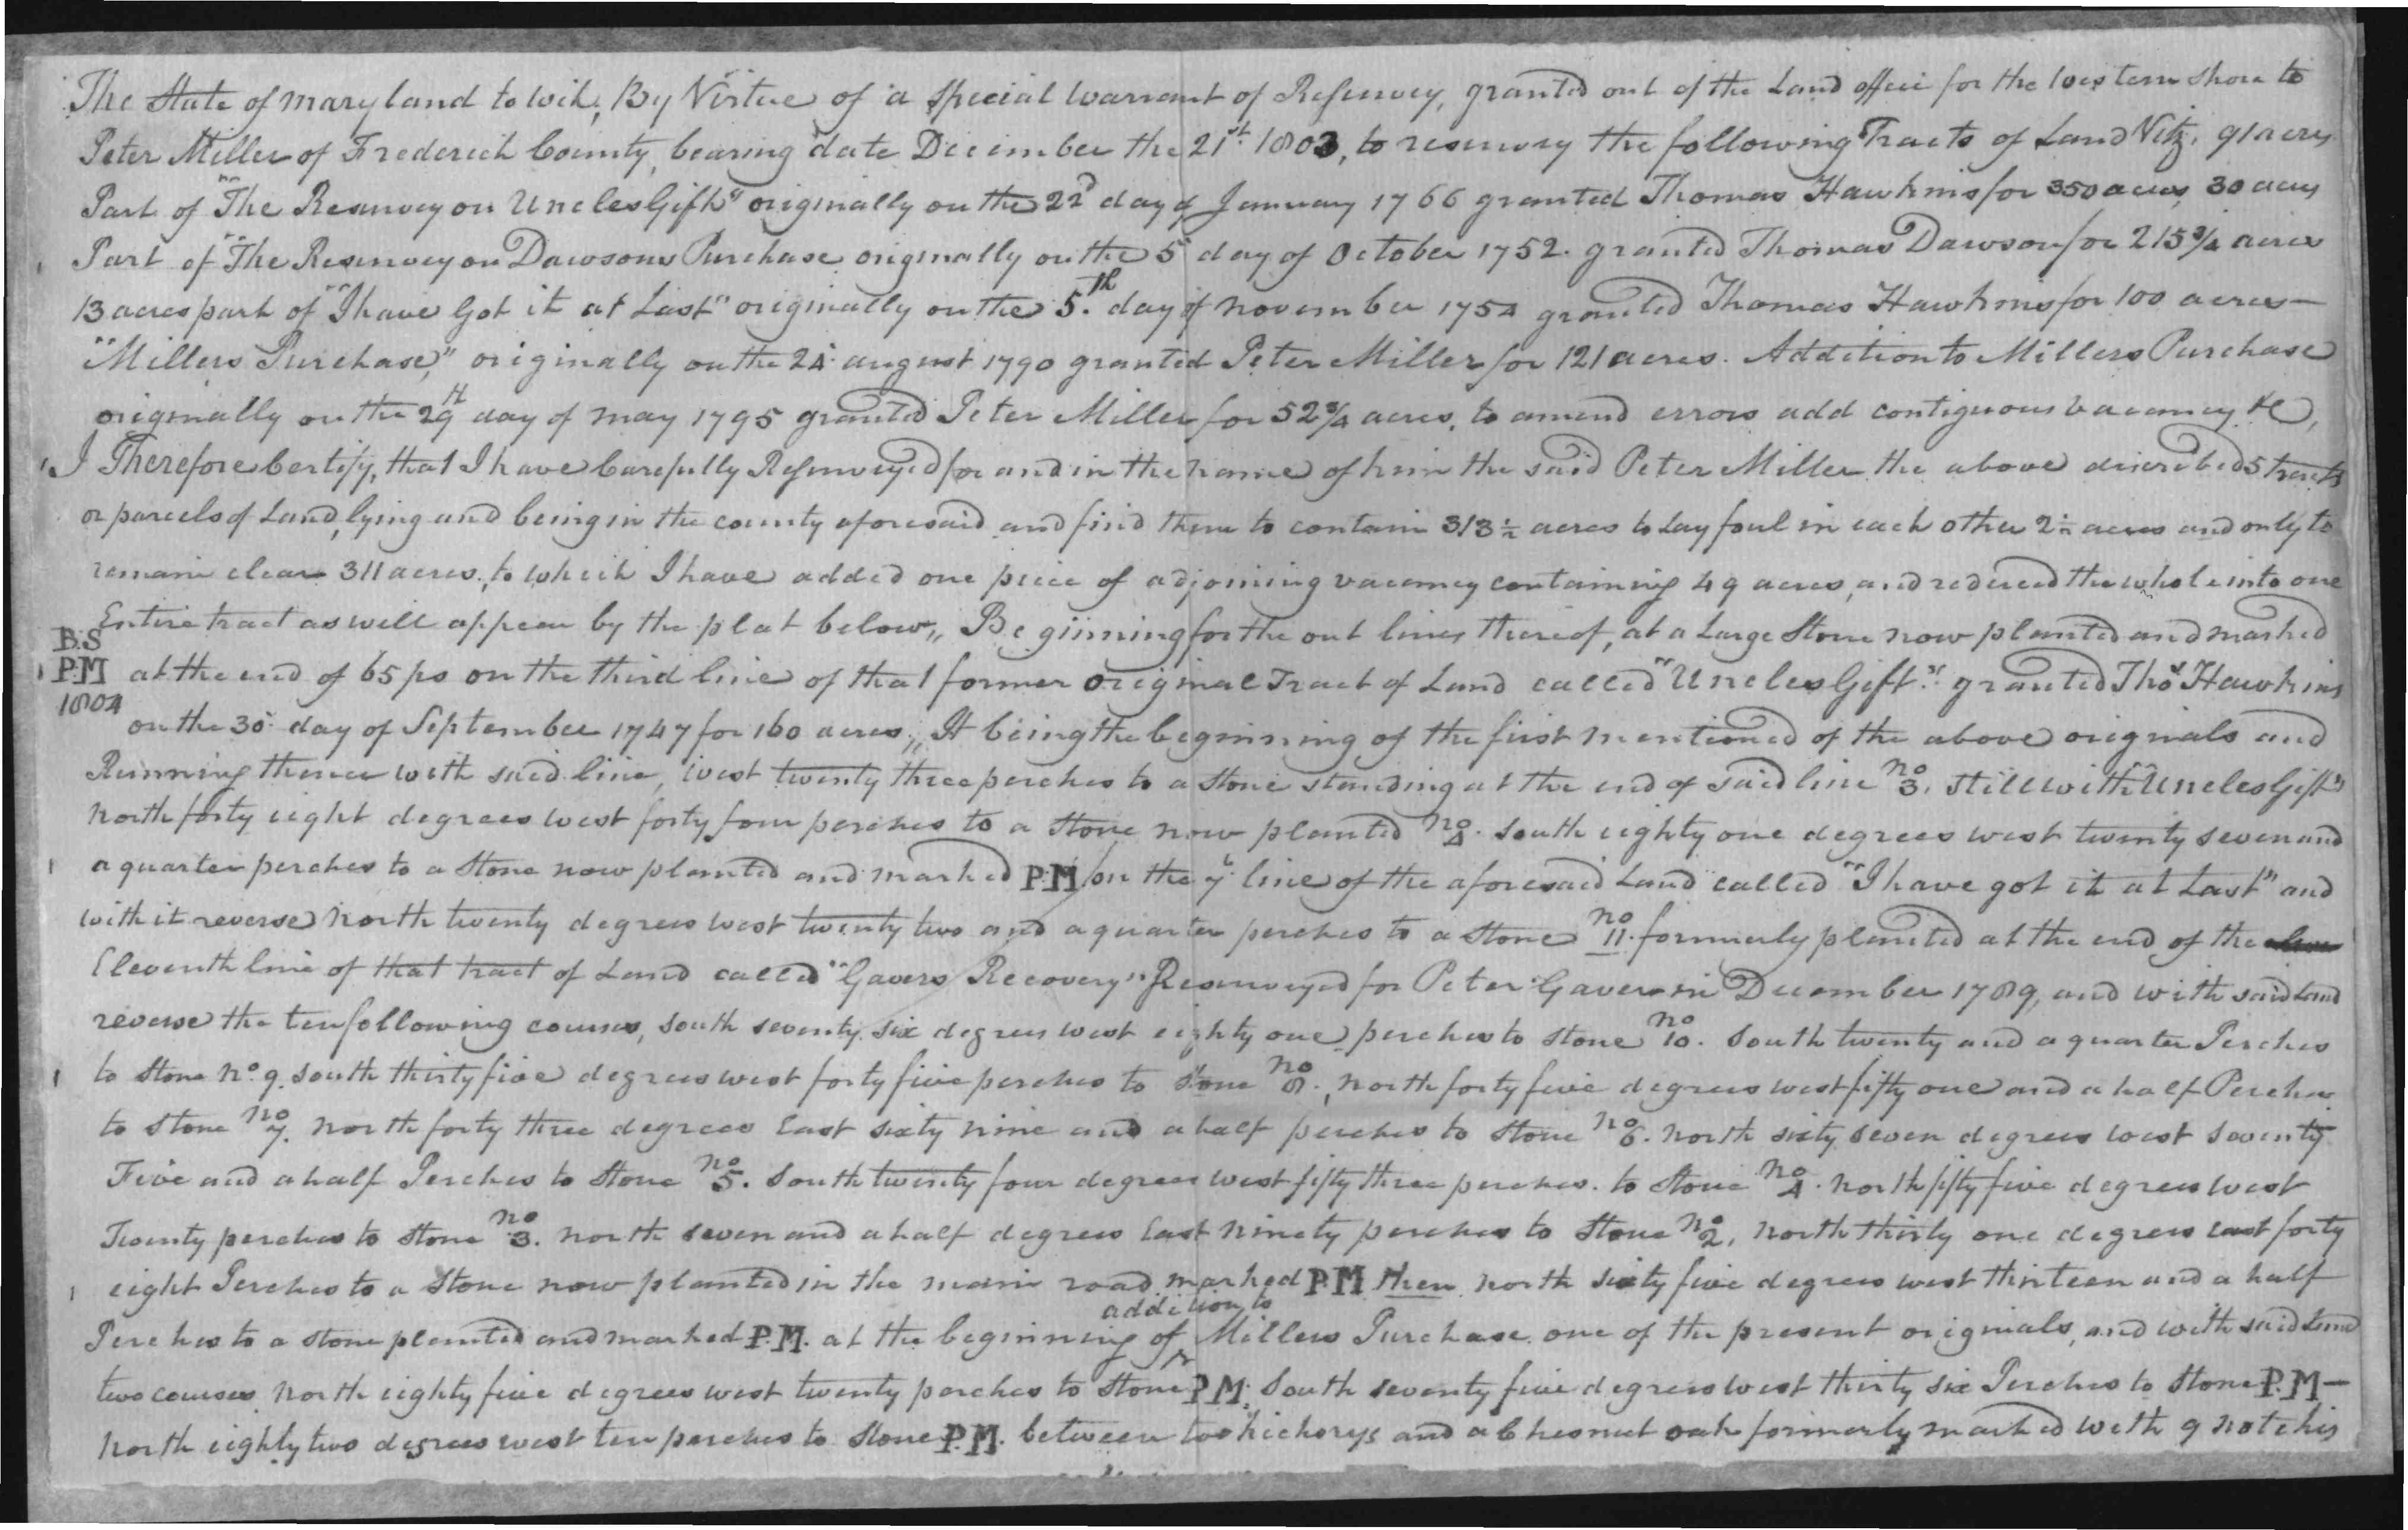 The State of maryland to wit, By Virtue of a Special warrant of Resurvey, granted out of the Land office for the western Shore to
Peter Miller of Frederick County, bearing date December the 21st 1803, to resurvey the following Tracts of Land Vitz. 91 acres
Part of "The Resurvey on Uncles Gift" originally on the 22d day of January 1766 granted Thomas Hawkins for 350 acres, 30 acres
Part of "The Resurvey on Dawsons Purchase originally on the 5 day of October 1752. granted Thomas Dawson for 215 3/4 acres
13 acres part of "I have Got it at Last" originally on the 5.th day of november 1754 granted Thomas Hawkins for 100 acres —
"Millers Purchase," originally on the 24 august 1790 granted Peter Miller for 121 acres. Addition to Millers Purchase
originally on the 29th day of may 1795 granted Peter Miller for 52 3/4 acres, to amend errors add contiguous vacancy &c,
I Therefore Certify, that I have Carefully Resurveyed for and in the name of him the said Peter Miller the above discribed 5 tracts
or parcels of Land, lying and being in the county aforesaid and find them to contain 313 1/2 acres to Lay foul in each other 2 1/2 acres and only to
remain clear 311 acres, to which I have added one piece of adjoining vacancy containing 49 acres, and reduced the whole into one
Entire tract as will appear by the plat below,, Beginning for the out lines thereof, at a Large Stone now planted and marked
B.S
P.M at the end of 65 ps on the third line of that former original Tract of Land called "Uncles Gift" granted Thos Hawkins
1804
on the 30 day of September 1747 for 160 acres,, It being the beginning of the first mentioned of the above originals and
Running thence with said line, west twenty three perches to a Stone standing at the end of said line no 3. still with Uncles Gift"
north forty eight degrees west forty four perches to a Stone now planted no 4. South eighty one degrees west twenty seven and
a quarter perches to a Stone now planted and marked P.M on the 7 line of the aforesaid Land called "I have got it at Last" and
with it reverse north twenty degrees west twenty two and a quarter perches to a Stone no 11. formerly planted at the end of the
Eleventh line of that tract of Land called "Gavers Recovery" Resurveyed for Peter Gaver in December 1789, and with said Land
reverse the ten following courses, South seventy six degrees west eighty one perches to Stone no 10. South twenty and a quarter Perches
to Stone no 9. South thirty five degrees west forty five perches to Stone no 8., north forty five degrees west fifty one and a half Perches
to Stone no 7. north forty three degrees East sixty nine and a half perches to Stone no 6. north sixty seven degrees west seventy
Five and a half Perches to Stone no 5. South twenty four degrees west fifty three perches. to Stone no 4. north fifty five degrees west
Twenty perches to Stone no 3. north seven and a half degrees East ninety perches to Stone no 2, north thirty one degrees east forty
eight Perches to a Stone now planted in the main road marked P.M then north sixty five degrees west thirteen and a half
addition to
Perches to a Stone planted and marked P.M. at the beginning of ^ Millers Purchase one of the present originals, and with said Land
two courses, north eighty five degrees west twenty perches to Stone P M. South seventy five degrees west thirty six Perches to Stone P.M —
north eighty two degrees west ten perches to Stone P.M. between too hickorys and a Chesnut oak formerly marked with 9 notches